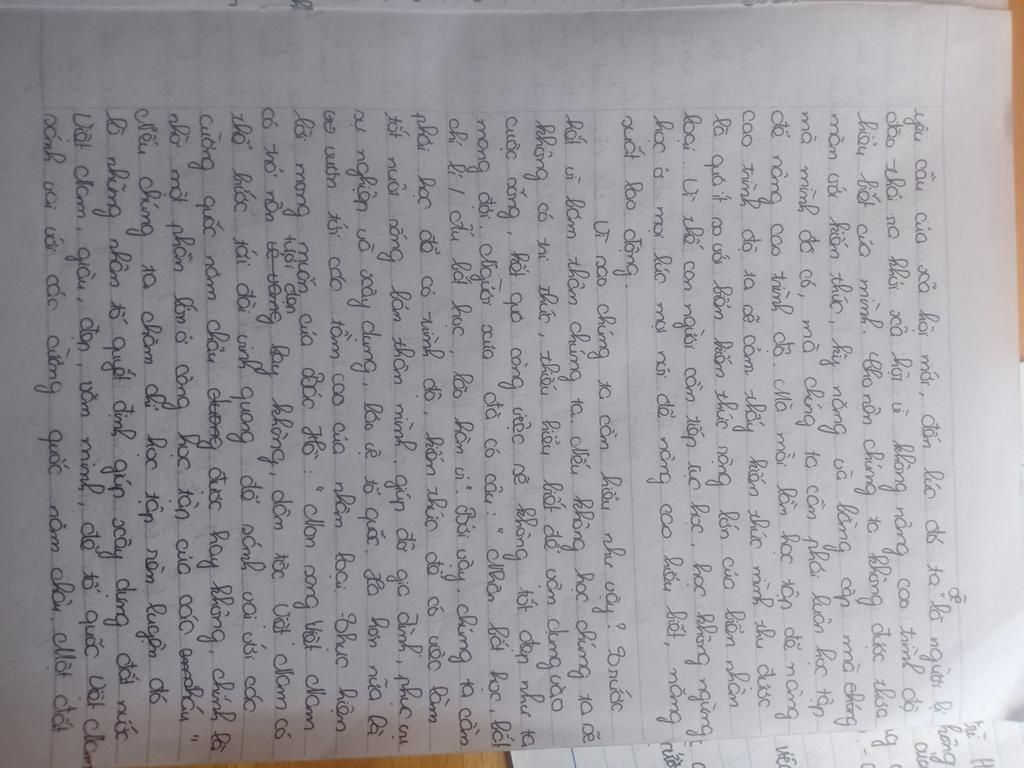 yêu cầu của xã hội mới, đến lúc đó ta sẽ là người bị
đào thải ra khỏi xã hội vì không nâng cao trình độ
hiểu biết của mình. Cho nên chúng ta không được thỏa
mãn với kiến thức, kỹ năng và bằng cấp mà
mà mình đã có, mà chúng ta cần phải luôn học tập
để nâng cao trình độ. Mà mỗi lần học tập để nâng
cao trình độ ta sẽ cảm thấy kiến thức mình thu được
là quá ít so với kiến thức rộng lớn của nhân
loại. Vì thế con người cần tiếp tục học, học không ngừng,
học ở mọi lúc mọi nơi để nâng cao hiểu biết, nâng
suất lao động.
Vì sao chúng ta cần hiểu như vậy? Trước
hết vì bản thân chúng ta. Nếu không học chúng ta sẽ
không có tri thức, thiếu hiểu biết để vận dụng vào
cuộc sống, kết quả công việc sẽ không tốt đẹp như ta
mong đợi. Người xưa đã có câu: "Nhân bất học bất
tri lí / ấu bất học, lão hà vi". Bởi vậy, chúng ta cần
phải học để có trình độ, kiến thức để có việc làm
tốt nuôi sống bản thân mình, giúp đỡ gia đình, phục vụ
sự nghiệp và xây dựng, bảo vệ tổ quốc. Xa hơn nữa là
vươn tới các tầm cao của nhân loại. Thực hiện
lời mong muốn của Bác Hồ: "Non sông Việt Nam
có trở nên tươi đẹp hay không, dân tộc Việt Nam có
thể bước tới đài vinh quang để sánh vai với các
cường quốc năm châu được hay không, chính là
nhờ một phần lớn ở công học tập của các cháu."
Nếu chúng ta chăm chỉ học tập rèn luyện đó
là những nhân tố quyết định góp xây dựng đất nước
Việt Nam, giàu, đẹp, văn minh, để tổ quốc Việt Nam
sánh vai với các cường quốc năm châu. Một đất